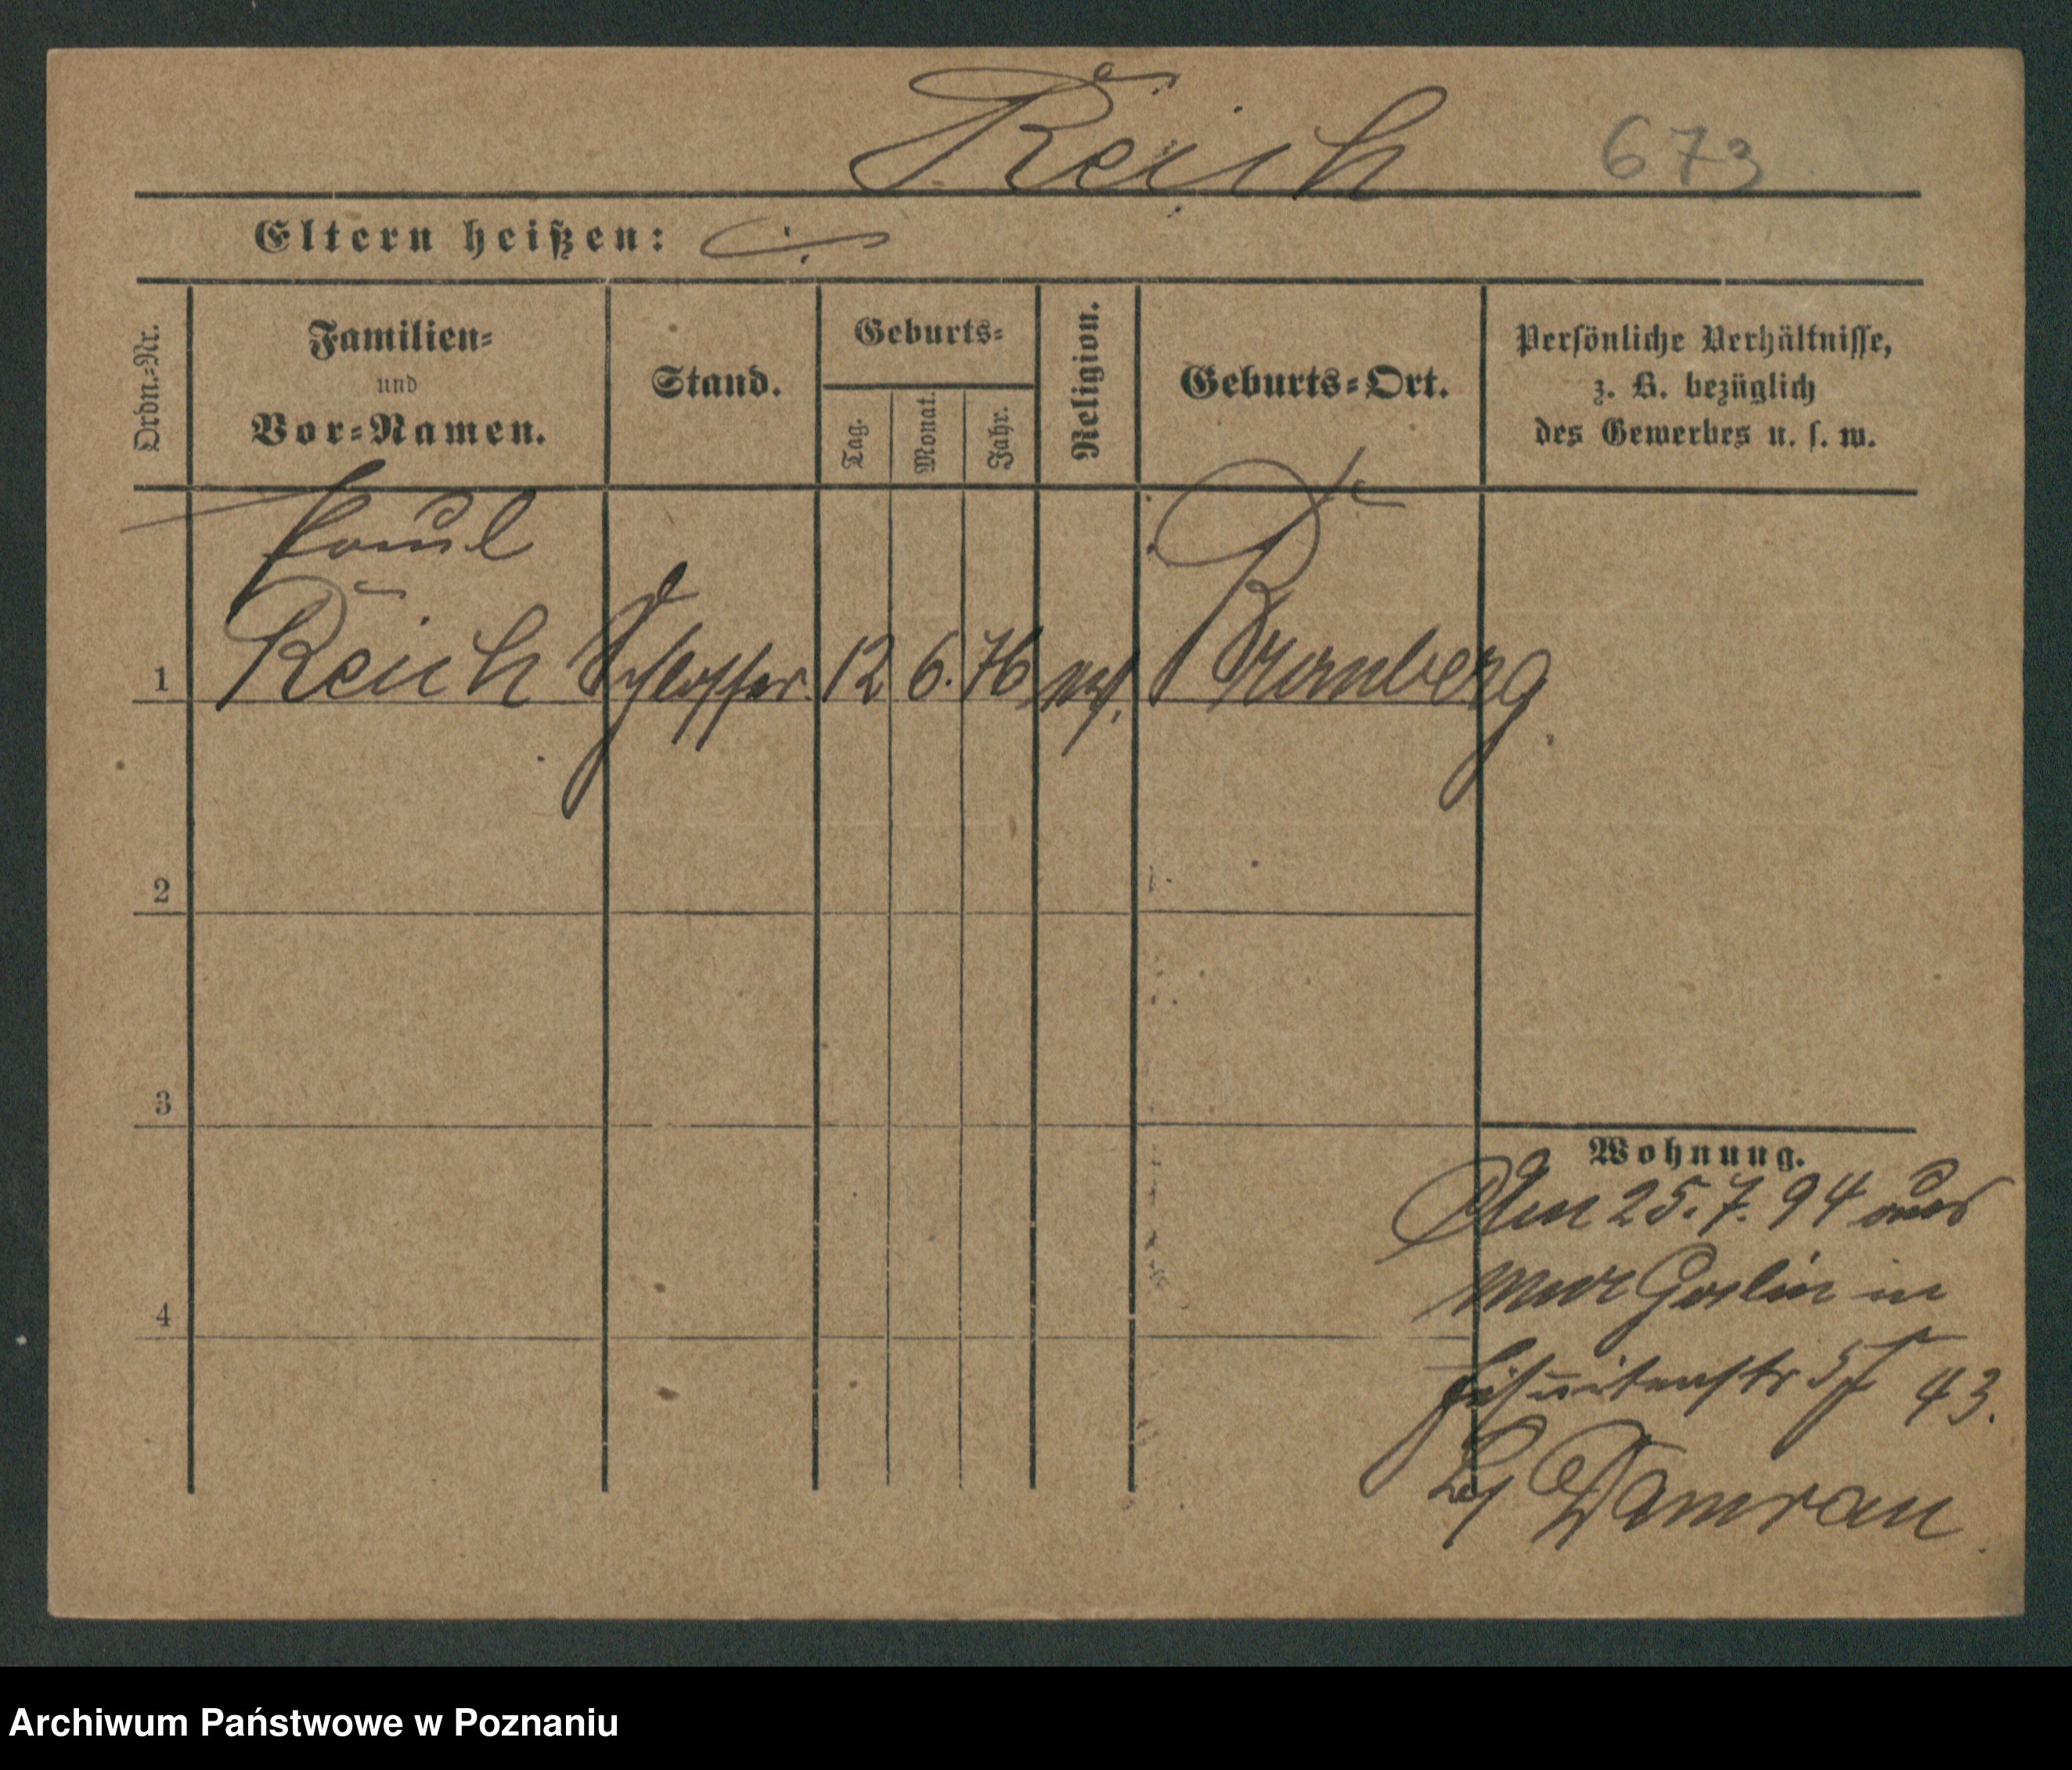 Reich 673
Eltern heißen:
Ordn.-Nr.
Familien-
und
Vor-Namen.
Stand.
Geburts-
Tag.
Monat.
Jahr.
Religion.
Geburts-Ort.
Persönliche Verhältnisse,
z. B. bezüglich
des Gewerbes u. s. w.
Paul
1 Reich Schlosser 12 6. 76 Bromberg
2
3
4
Wohnung.
Am 25. 7. 94 aus
Mur Goslin in
Jesuitenstr 5 43.
bei Damrau
Archiwum Państwowe w Poznaniu